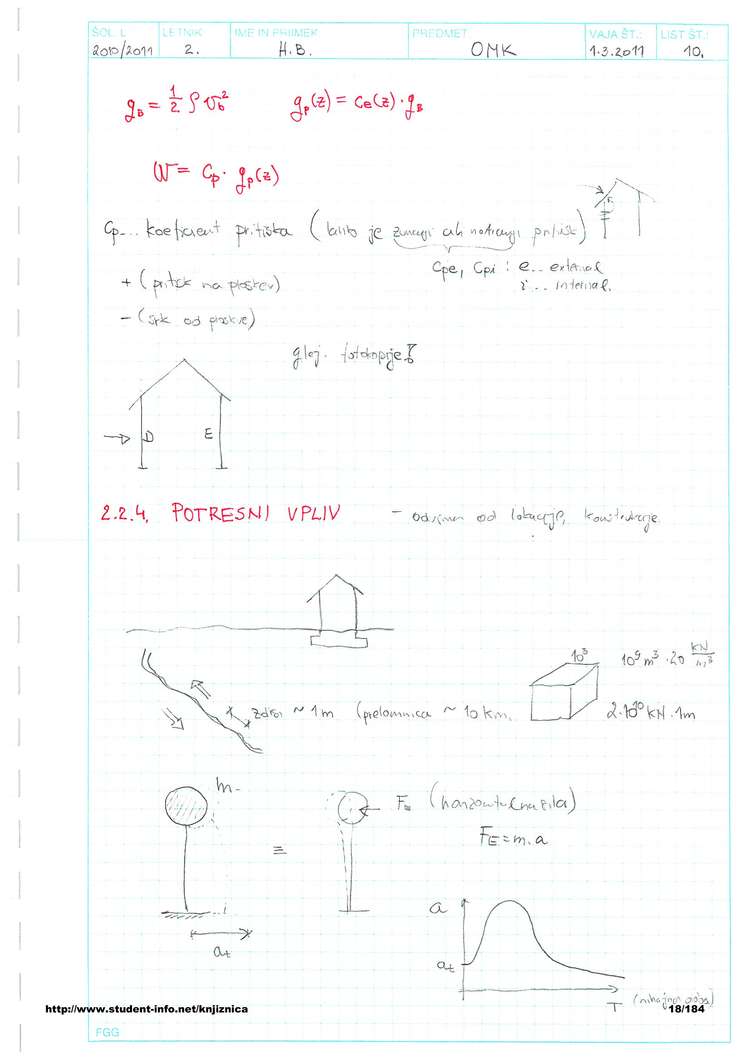 ŠOL. L. LETNIK IME IN PRIIMEK PREDMET VAJA ŠT.: LIST ŠT.:
2010/2011 2. H.B. OMK 1.3.2011 10.
g_B = 1/2 ρ v_b² g_p(z) = c_e(z) · g_B
W = c_p · g_p(z)
Cp... koeficient pritiska ( je zunanji ali notranji pritisk)
Cpe, Cpi : e.. external
i ... internal.
+ (pritisk na ploskev)
- (srk od ploskve)
glej. fotokopije!
D E
2.2.4. POTRESNI VPLIV - odvisen od lokacije, konstrukcije
10³ 10⁹ m³ · 20 kN/m³
zdrs ~ 1m (prelomnica ~ 10 km. 2·10¹⁰ kN · 1m
m
≡ F_E (horizontalna sila)
F_E = m · a
a_t
a
a_t
T (nihajna doba)
http://www.student-info.net/knjiznica 18/184
FGG